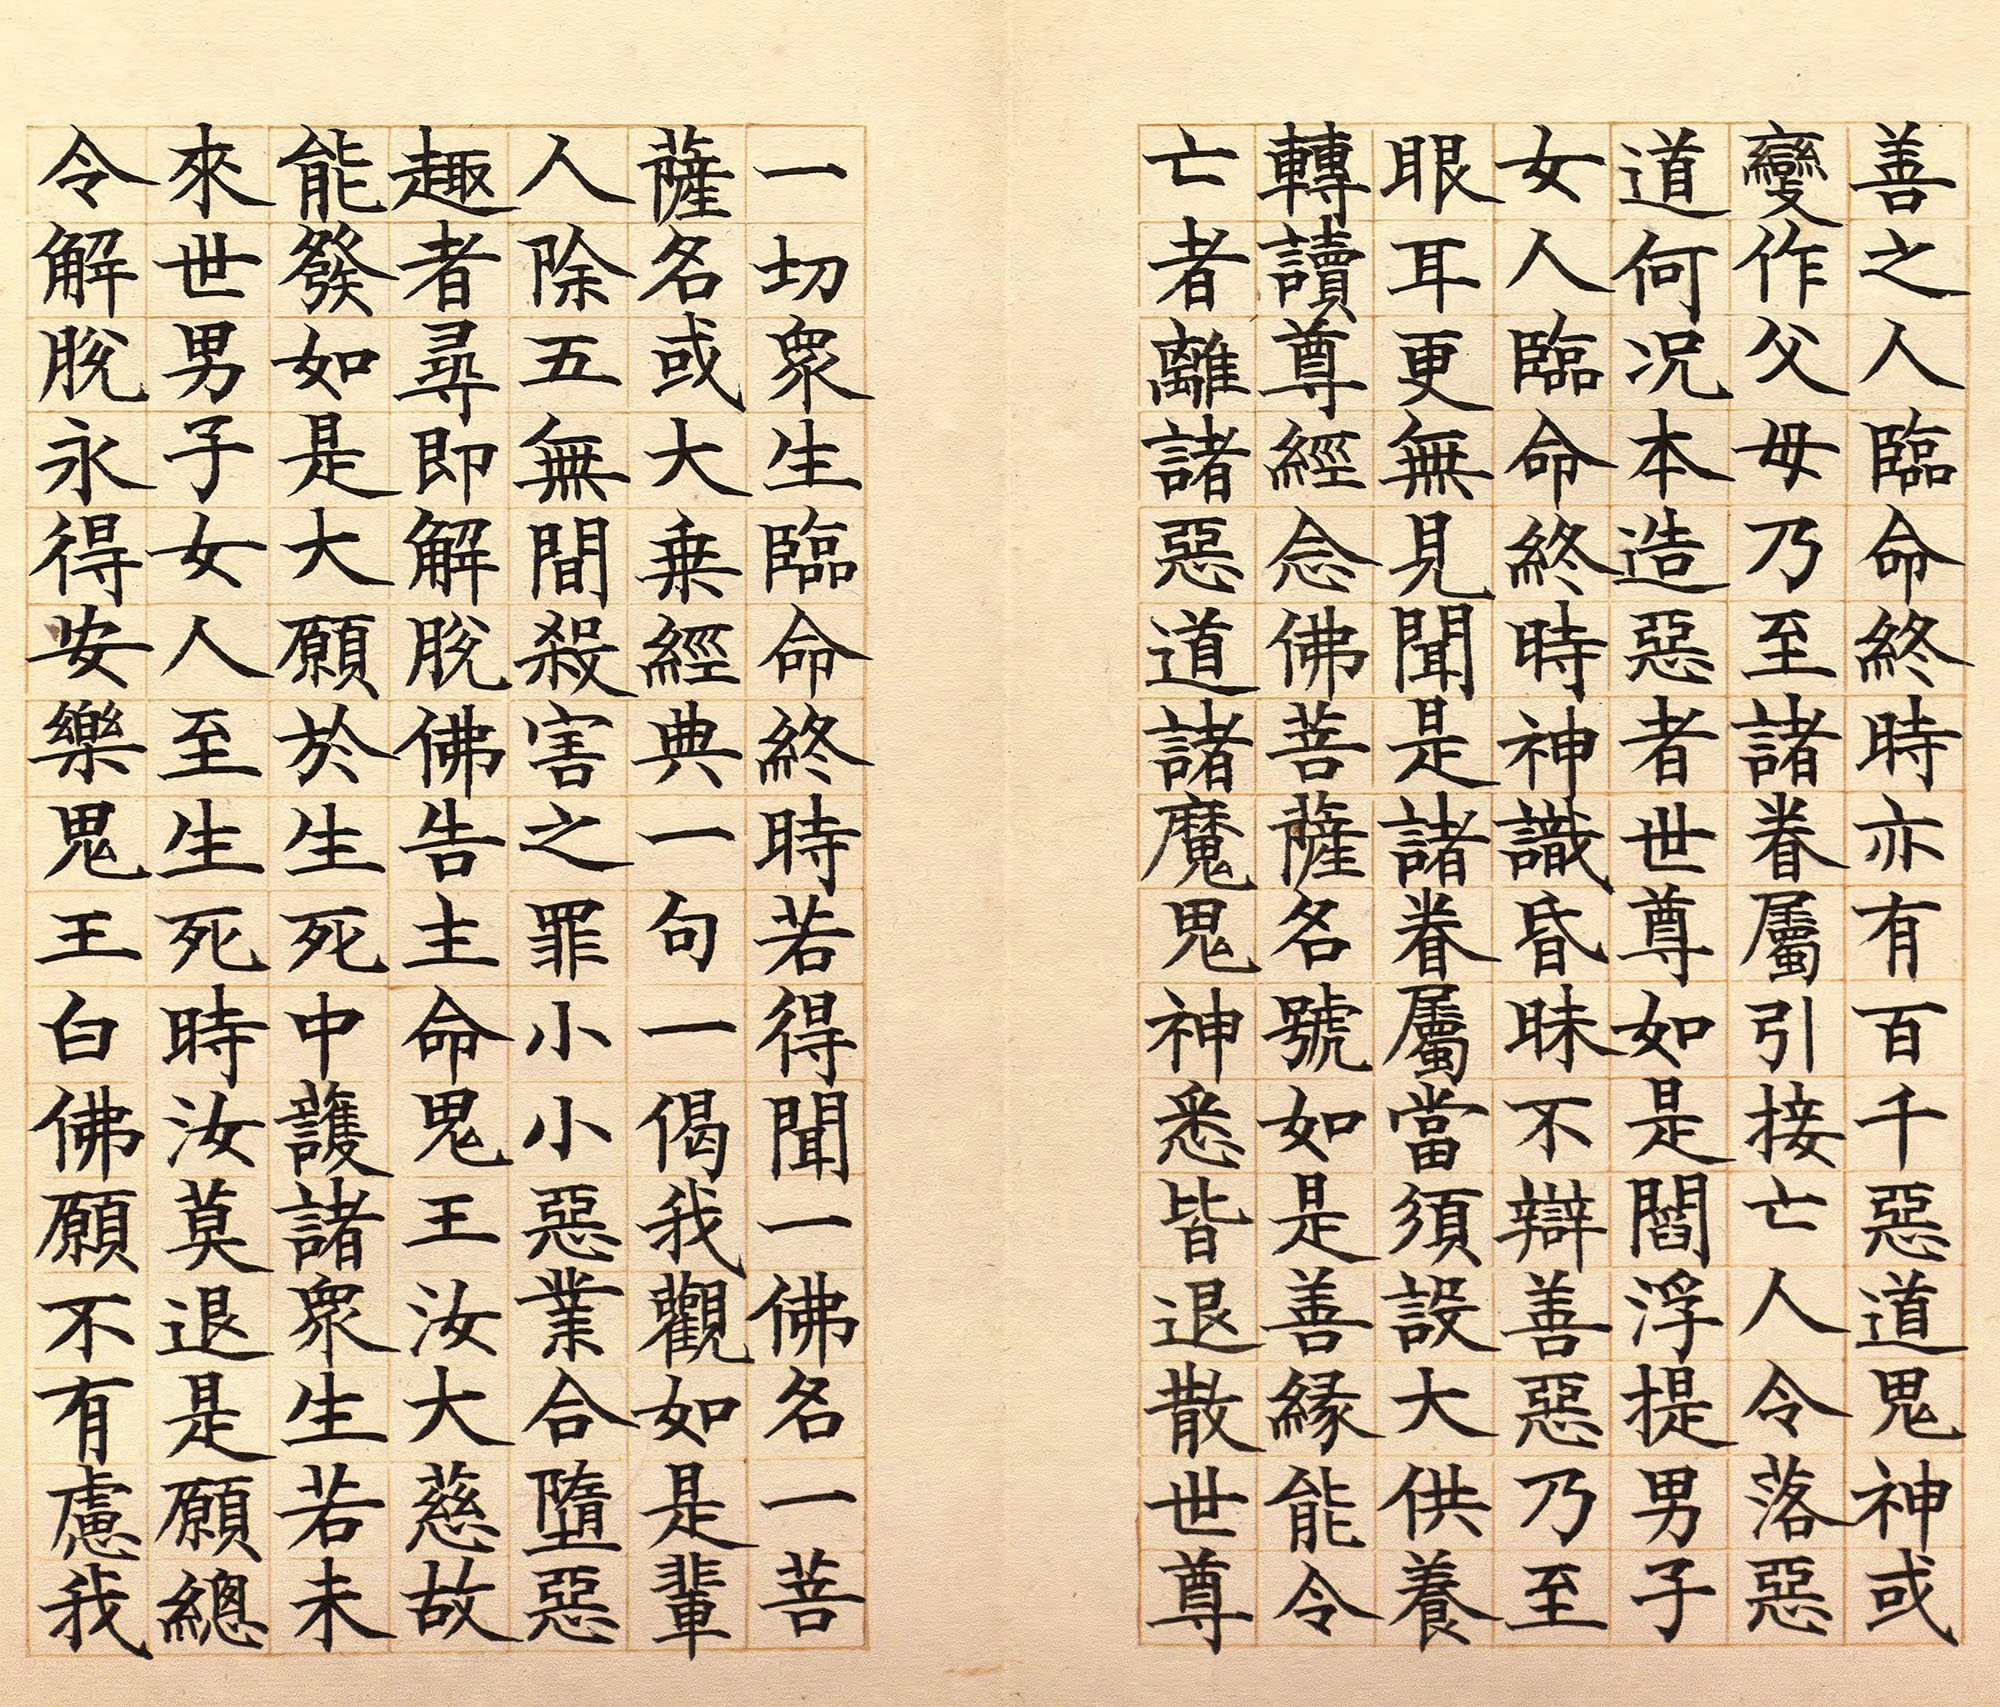 善之人臨命終時亦有百千惡道鬼神或
變作父母乃至諸眷屬引接亡人令落惡
道何况本造惡者世尊如是閻浮提男子
女人臨命終時神識昏昧不辯善惡乃至
眼耳更無見聞是諸眷屬當須設大供養
轉讀尊經念佛菩薩名號如是善緣能令
亡者離諸惡道諸魔鬼神悉皆退散世尊
一切衆生臨命終時若得聞一佛名一菩
薩名或大乗經典一句一偈我觀如是輩
人除五無間殺害之罪小小惡業合墮惡
趣者尋即解脫佛告主命鬼王汝大慈故
能發如是大願於生死中護諸衆生若未
來世男子女人至生死時汝莫退是願總
令解脫永得安樂鬼王白佛願不有慮我